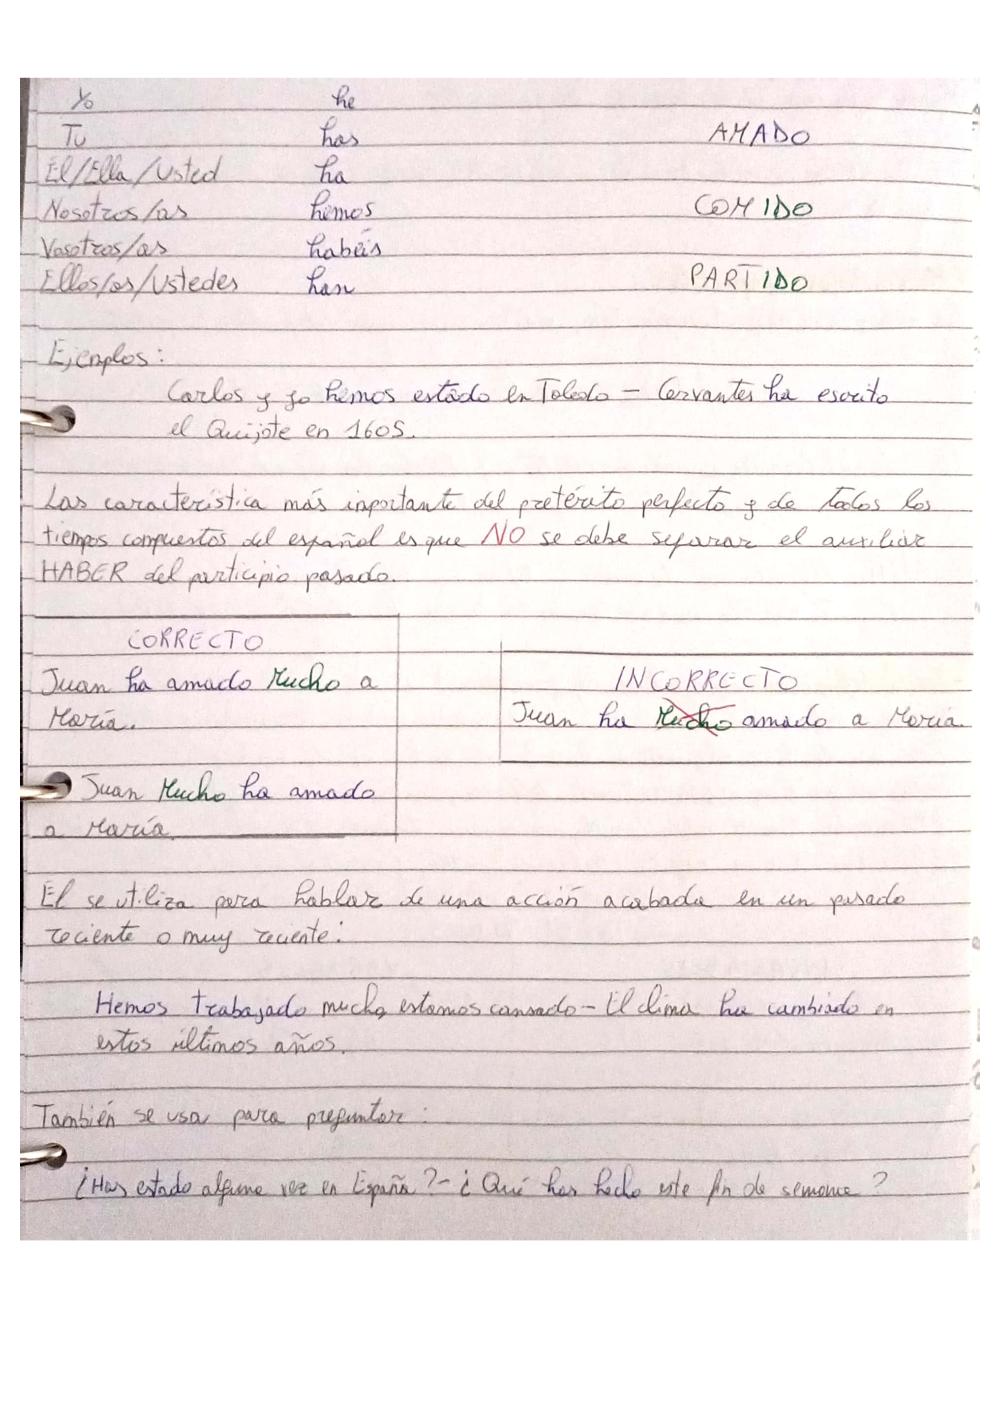 Yo he
Tu has AMADO
El/Ella/Usted ha
Nosotros/as hemos COMIDO
Vosotros/as habéis
Ellos/as/Ustedes han PARTIDO
Ejemplos:
Carlos y yo hemos estado en Toledo - Cervantes ha escrito
el Quijote en 1605.
Las característica más importante del pretérito perfecto y de todos los
tiempos compuestos del español es que NO se debe separar el auxiliar
HABER del participio pasado.
CORRECTO
Juan ha amado Mucho a
María.
Juan Mucho ha amado
a María
INCORRECTO
Juan ha Mucho amado a María.
El se utiliza para hablar de una acción acabada en un pasado
reciente o muy reciente:
Hemos trabajado mucho, estamos cansado - El clima ha cambiado en
estos últimos años.
También se usa para preguntar:
¿Has estado alguna vez en España? - ¿Qué has hecho este fin de semana?